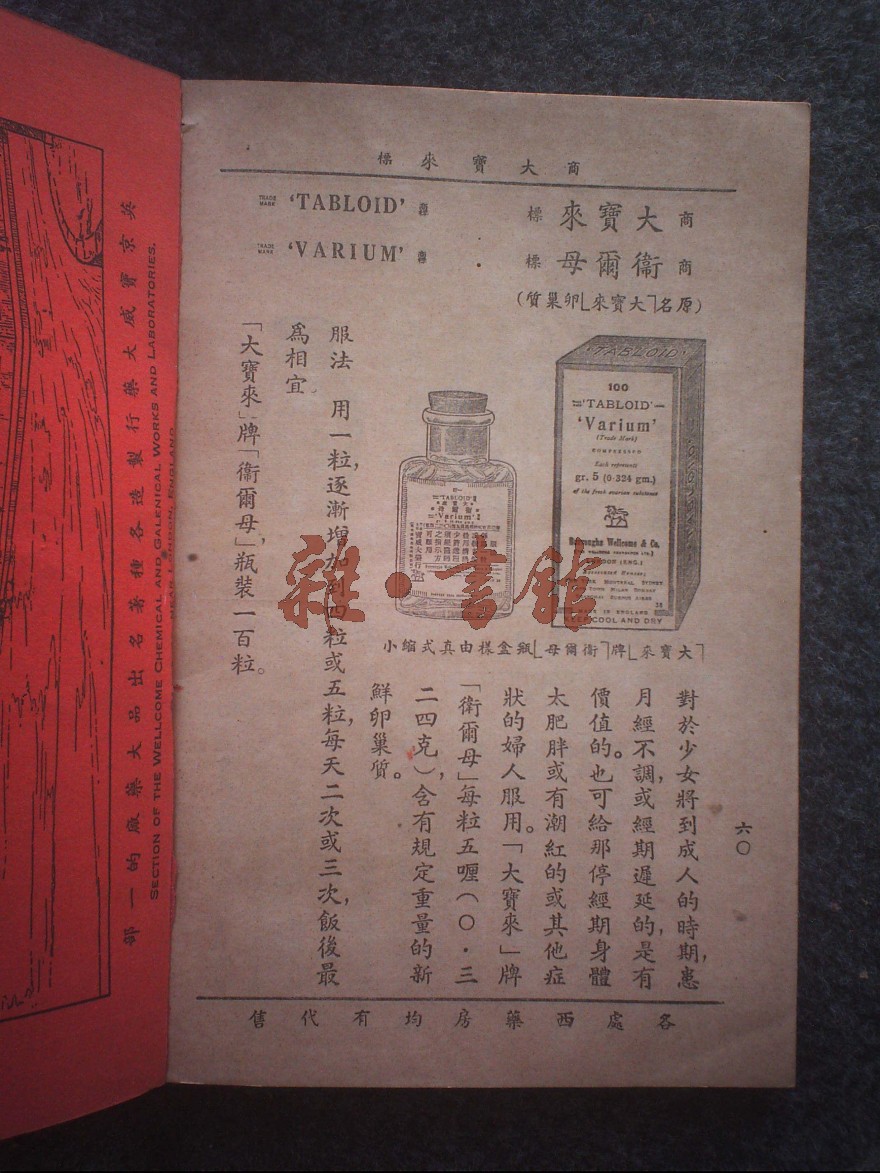 商 大 寶 來 標
商 大寶來 標
TRADE MARK 'TABLOID' 商標
商 衞爾母 標
TRADE MARK 'VARIUM' 商標
(原名「大寶來」卵巢質)
'TABLOID'
100
'TABLOID'
'Varium'
(Trade Mark)
COMPRESSED
Each represents
gr. 5 (0·324 gm.)
of the fresh ovarian substance
Burroughs Wellcome & Co.
LONDON (ENG.)
Associated Houses:
MONTREAL SYDNEY
CAPE TOWN MILAN BOMBAY
BUENOS AIRES
MADE IN ENGLAND
KEEP COOL AND DRY
'TABLOID'
大寶來
衞爾母
'Varium'
「大寶來」牌「衞爾母」瓶盒樣由真式縮小
對於少女將到成人的時期,患
月經不調,或經期遲延的,是有
價值的。也可給那停經期身體
太肥胖或有潮紅的或其他症
狀的婦人服用。「大寶來」牌
「衞爾母」每粒五喱(〇·三
二四克),含有規定重量的新
鮮卵巢質。
服法 用一粒,逐漸增加到四粒或五粒,每天二次或三次,飯後最
爲相宜
「大寶來」牌「衞爾母」,瓶裝一百粒。
六〇
各處西藥房均有代售
雜·書館
英京寶威大藥行製造各種著名出品大藥廠的一部
SECTION OF THE WELLCOME CHEMICAL AND GALENICAL WORKS AND LABORATORIES,
NEAR LONDON, ENGLAND